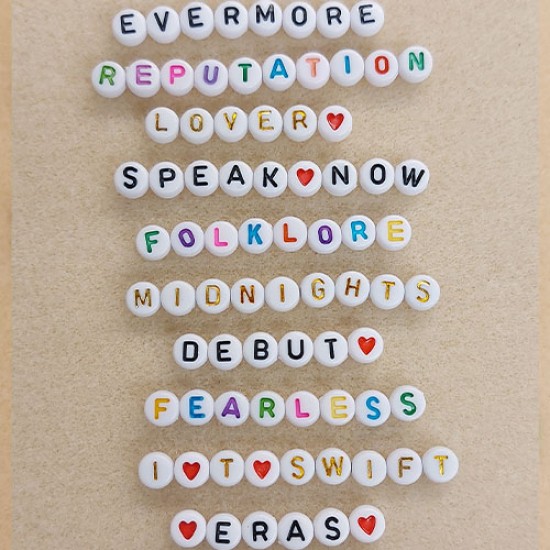 EVERMORE
REPUTATION
LOVER♥
SPEAK♥NOW
FOLKLORE
MIDNIGHTS
DEBUT♥
FEARLESS
I♥T♥SWIFT
♥ERAS♥